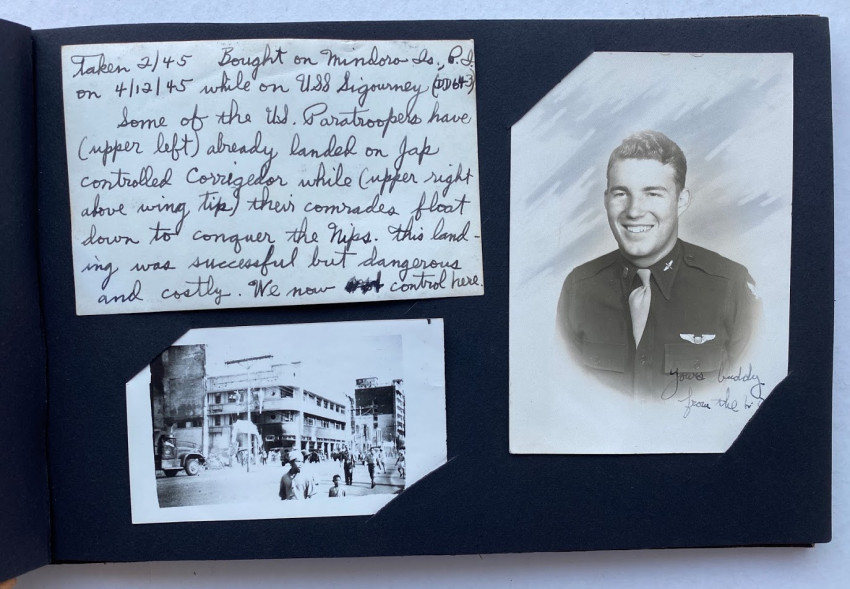 Taken 2/45 Bought on Mindoro Is., P.I.
on 4/12/45 while on USS Sigourney (DD643)
Some of the U.S. Paratroopers have
(upper left) already landed on Jap
controlled Corrigedor while (upper right
above wing tip) their comrades float
down to conquer the Nips. This land-
ing was successful but dangerous
and costly. We now control here.
Yours buddy
from the